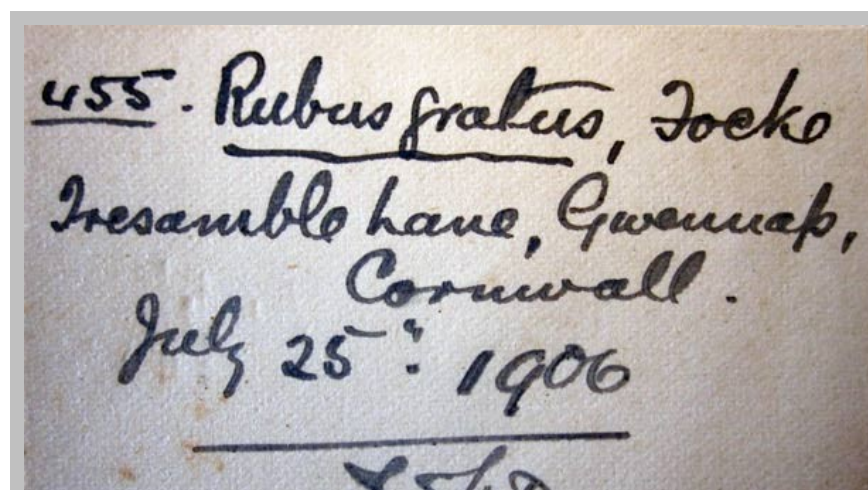 455. Rubus gratus, Focke
Tresamble Lane, Gwennap,
Cornwall.
July 25". 1906